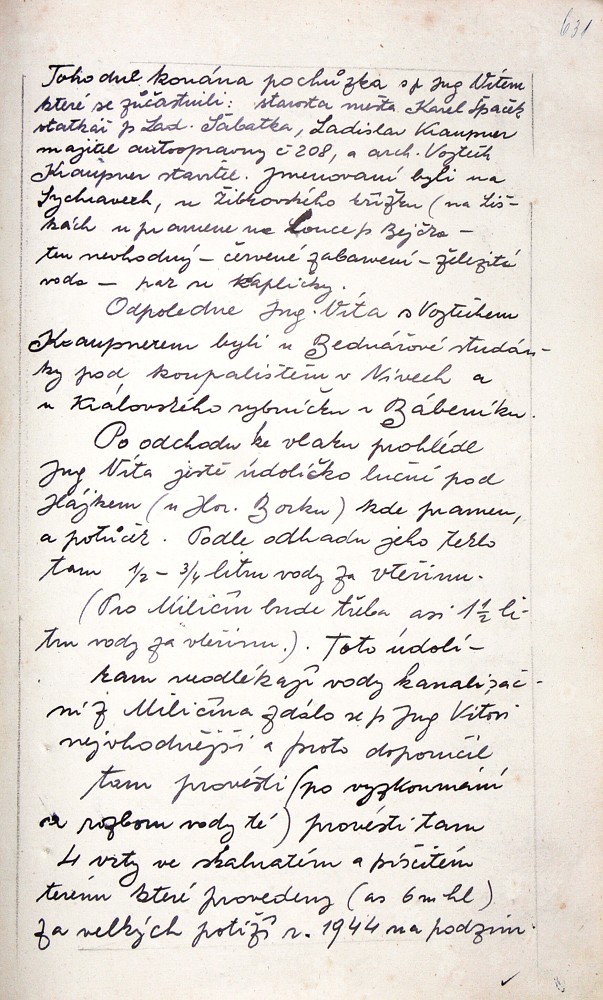 631
Toho dne konána pochůzka s p Ing Vítem
které se zůčastnili: starosta města Karel Špaček
statkář p Lad. Sabatka, Ladislav Kraupner
majitel autoopravny č 208, a arch. Vojtěch
Kraupner stavitel. Jmenovaní byli na
Sychravech, u Žibkovského křížku (na Liš-
kách u pramene na Louce p Bejčka –
ten nevhodný – červené zabarvení – železitá
voda – pak u kapličky.
Odpoledne Ing. Víta s Vojtěchem
Kraupnerem byli u Bednářové studán-
ky pod koupalištěm v Nivech a
u Královského rybníčku v Bábeníku.
Po odchodu ke vlaku prohlédl
Ing Víta ještě údolíčko luční pod
Hájkem (u Hor. Borku) kde pramen,
a potůček. Podle odhadu jeho teklo
tam 1/2 – 3/4 litru vody za vteřinu.
(Pro Miličín bude třeba asi 1 1/2 li-
tru vody za vteřinu.). Toto údolí –
kam neodtékají vody kanalizač-
ní z Miličína zdálo se p Ing Vítovi
nejvhodnější a proto doporučil
tam provésti (po vyzkoumání
a rozboru vody té) provésti tam
4 vrty ve skalnatém a písčitém
terénu které provedeny (as 6 m hl)
za velkých potíží r. 1944 na podzim.